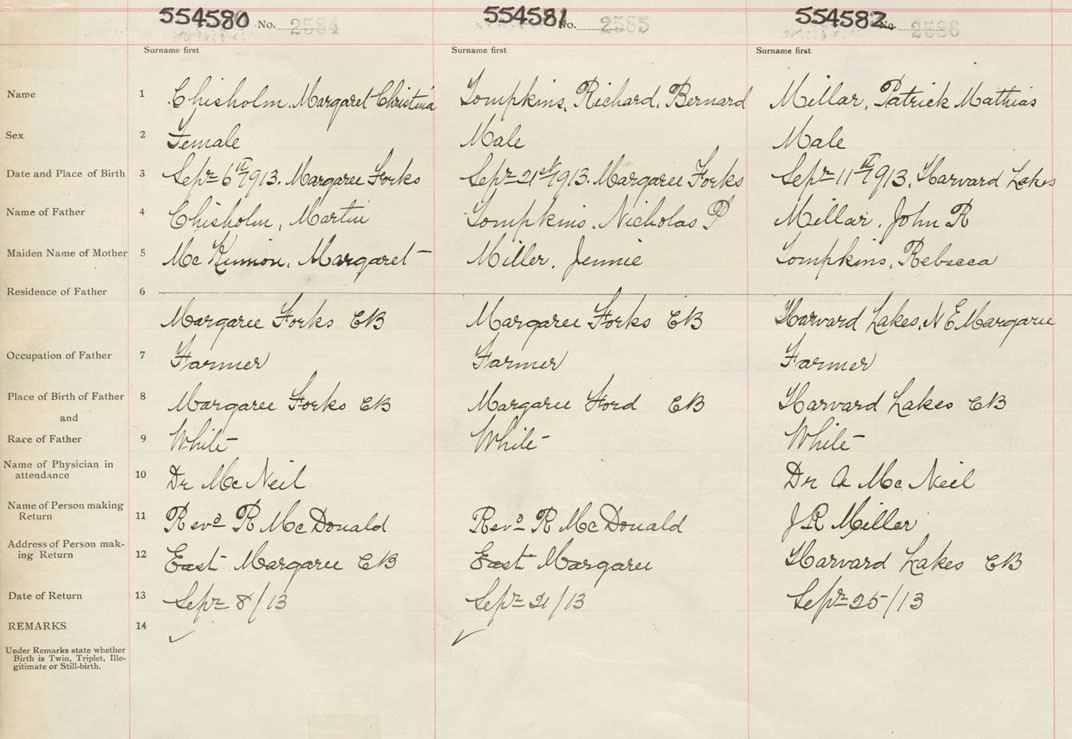 554580 No. 2584 554581 No. 2585 554582 No. 2586
Surname first Surname first Surname first
Name 1 Chisholm, Margaret Christina Tompkins, Richard, Bernard Millar, Patrick Mathias
Sex 2 Female Male Male
Date and Place of Birth 3 Sepr 6th 1913, Margaree Forks Sepr 21st 1913, Margaree Forks Sepr 11th 1913, Harvard Lakes
Name of Father 4 Chisholm, Martin Tompkins, Nicholas P Millar, John R
Maiden Name of Mother 5 McKinnon, Margaret Miller, Jennie Tompkins, Rebecca
Residence of Father 6
Margaree Forks CB Margaree Forks CB Harvard Lakes, N E Margaree
Occupation of Father 7 Farmer Farmer Farmer
Place of Birth of Father 8 Margaree Forks CB Margaree Ford CB Harvard Lakes CB
and
Race of Father 9 White White White
Name of Physician in
attendance 10 Dr McNeil Dr A McNeil
Name of Person making
Return 11 Revd R McDonald Revd R McDonald J R Miller
Address of Person mak-
ing Return 12 East Margaree CB East Margaree Harvard Lakes CB
Date of Return 13 Sepr 8/13 Sepr 21/13 Sepr 25/13
REMARKS 14
Under Remarks state whether
Birth is Twin, Triplet, Ille-
gitimate or Still-birth.